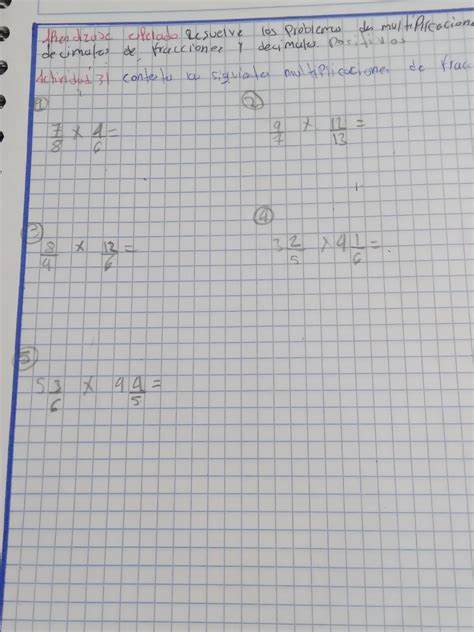 Aprendizaje esperado Resuelve los Problemas de multiplicacione
decimales de fracciones y decimales Positivos
Actividad 31 contesta la siguiente multiplicaciones de fracc
① ②
7/8 x 4/6 =
9/7 x 12/13 =
③ ④
8/4 x 12/6 =
3 2/5 x 4 1/6 =
⑤
5 3/6 x 4 4/5 =